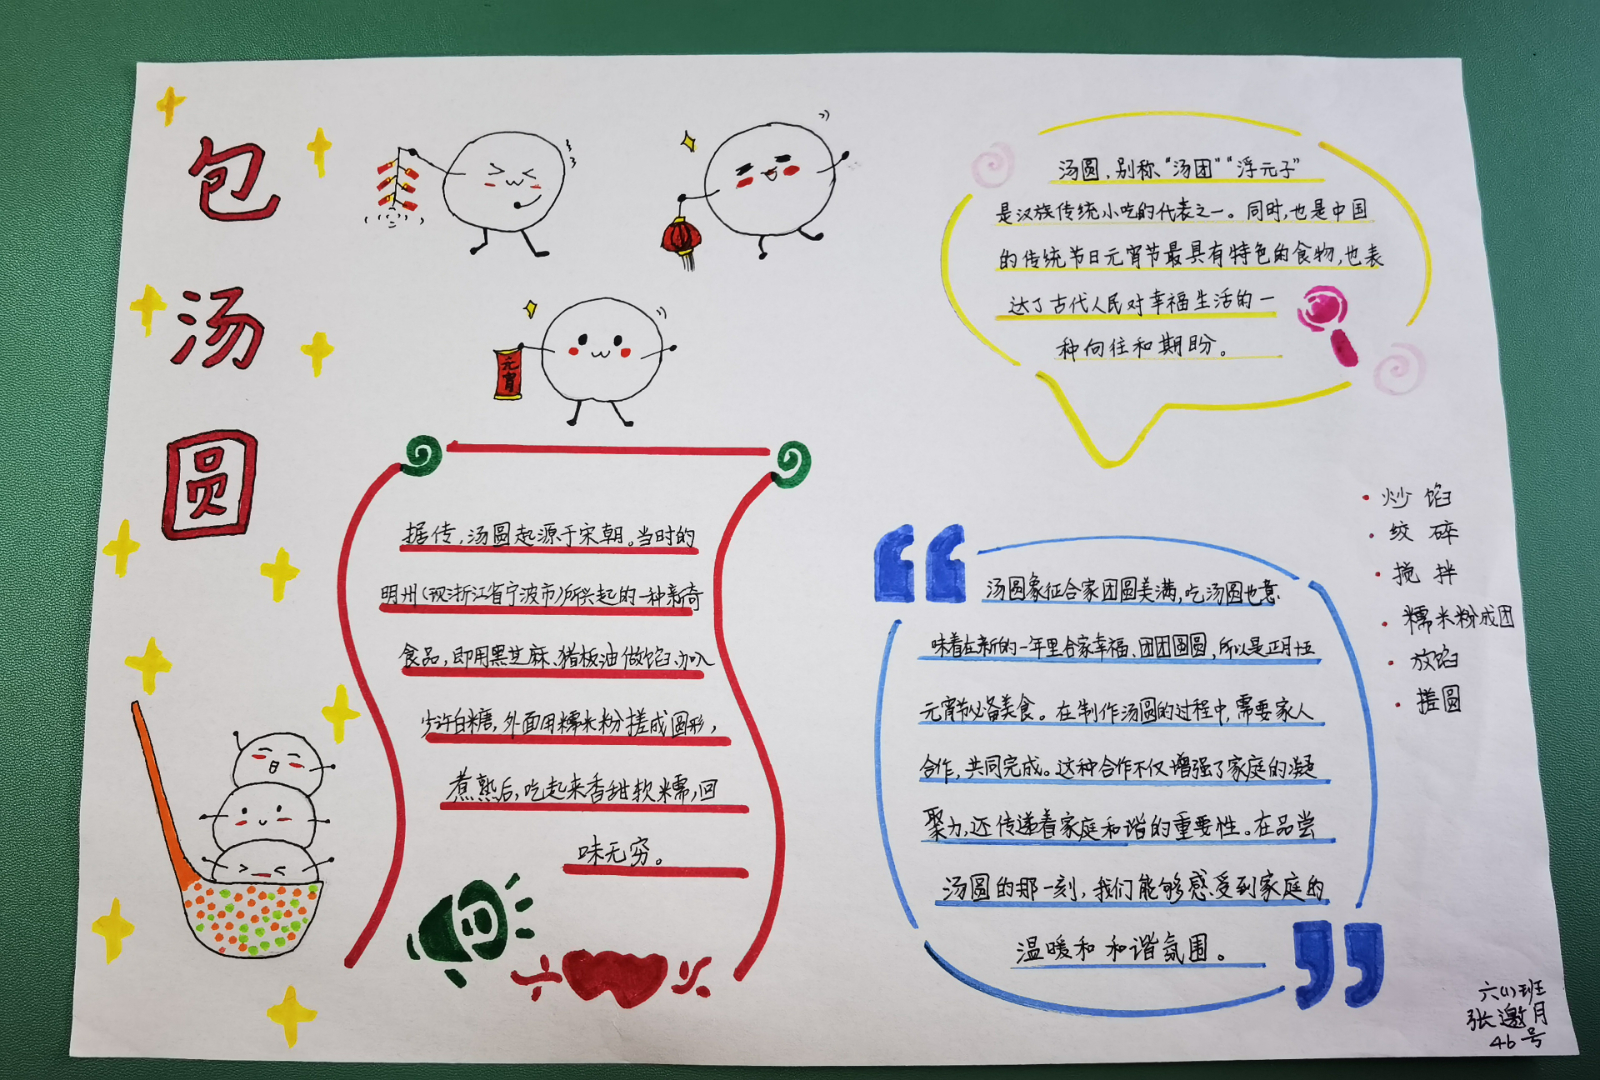 包
汤
圆
元
宵
汤圆，别称“汤团”“浮元子”
是汉族传统小吃的代表之一。同时，也是中国
的传统节日元宵节最具有特色的食物，也表
达了古代人民对幸福生活的一
种向往和期盼。
据传，汤圆起源于宋朝。当时的
明州（现浙江省宁波市）所兴起的一种新奇
食品，即用黑芝麻、猪板油做馅、加入
少许白糖，外面用糯米粉搓成圆形，
煮熟后，吃起来香甜软糯，回
味无穷。
汤圆象征合家团圆美满，吃汤圆也意
味着在新的一年里合家幸福、团团圆圆，所以是正月十五
元宵节必备美食。在制作汤圆的过程中，需要家人
合作，共同完成。这种合作不仅增强了家庭的凝
聚力，还传递着家庭和谐的重要性。在品尝
汤圆的那一刻，我们能够感受到家庭的
温暖和和谐氛围。
炒馅
绞碎
搅拌
糯米粉成团
放馅
搓圆
六(1)班
张邀月
46号